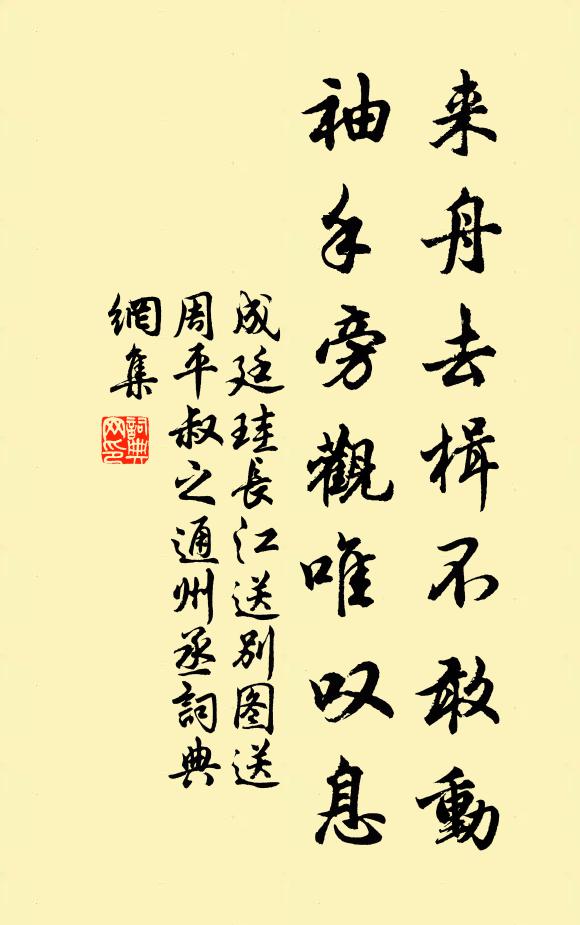 来舟去楫不敢動
袖手旁觀唯叹息
成廷珪長江送别图送
周平叔之通州丞詞典
網集
詞典
网印